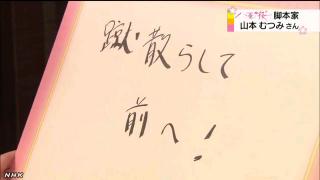 脚本家
山本むつみさん
蹴散らして
前へ!
NHK